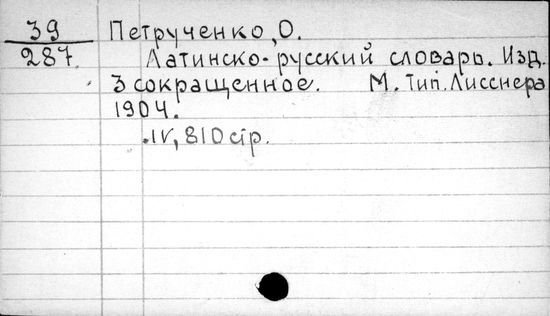 39
287.
Петрученко, О.
Латинско-русский словарь. Изд.
3 сокращенное. М. Тип. Лисснера
1904.
IV, 810 стр.